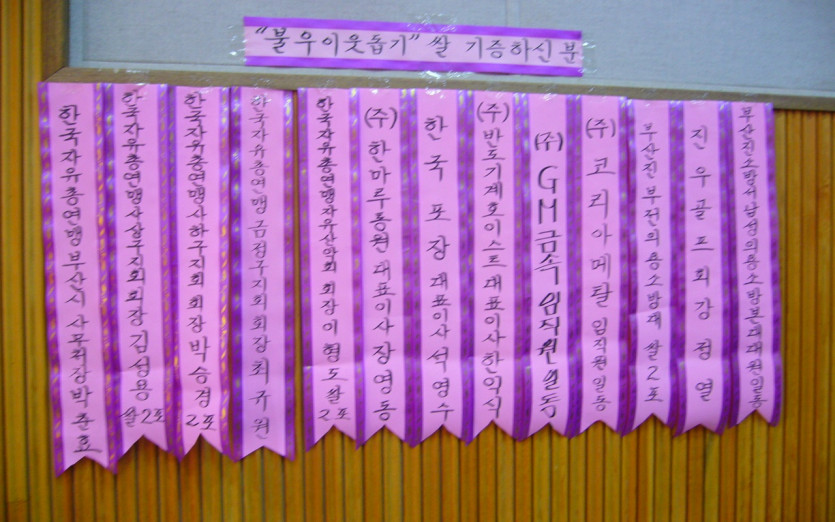 "불우이웃돕기" 쌀 기증하신 분
한국자유총연맹 부산시 사무처장 박춘효
한국자유총연맹 사상구지회 회장 김성용 쌀 2포
한국자유총연맹 사하구지회 회장 박승경 2포
한국자유총연맹 금정구지회 회장 최규원
한국자유총연맹 자유산악회 회장 이형도 쌀 2포
(주) 한마루통원 대표이사 장영동
한국포장 대표이사 석영수
(주) 반도기계호이스트 대표이사 한익식
(주) GM금속 임직원 일동
(주) 고리아메탈 임직원 일동
부산진 부전의용소방대 쌀 2포
진우골프회 강정열
부산진소방서 남성의용소방본대 대원 일동